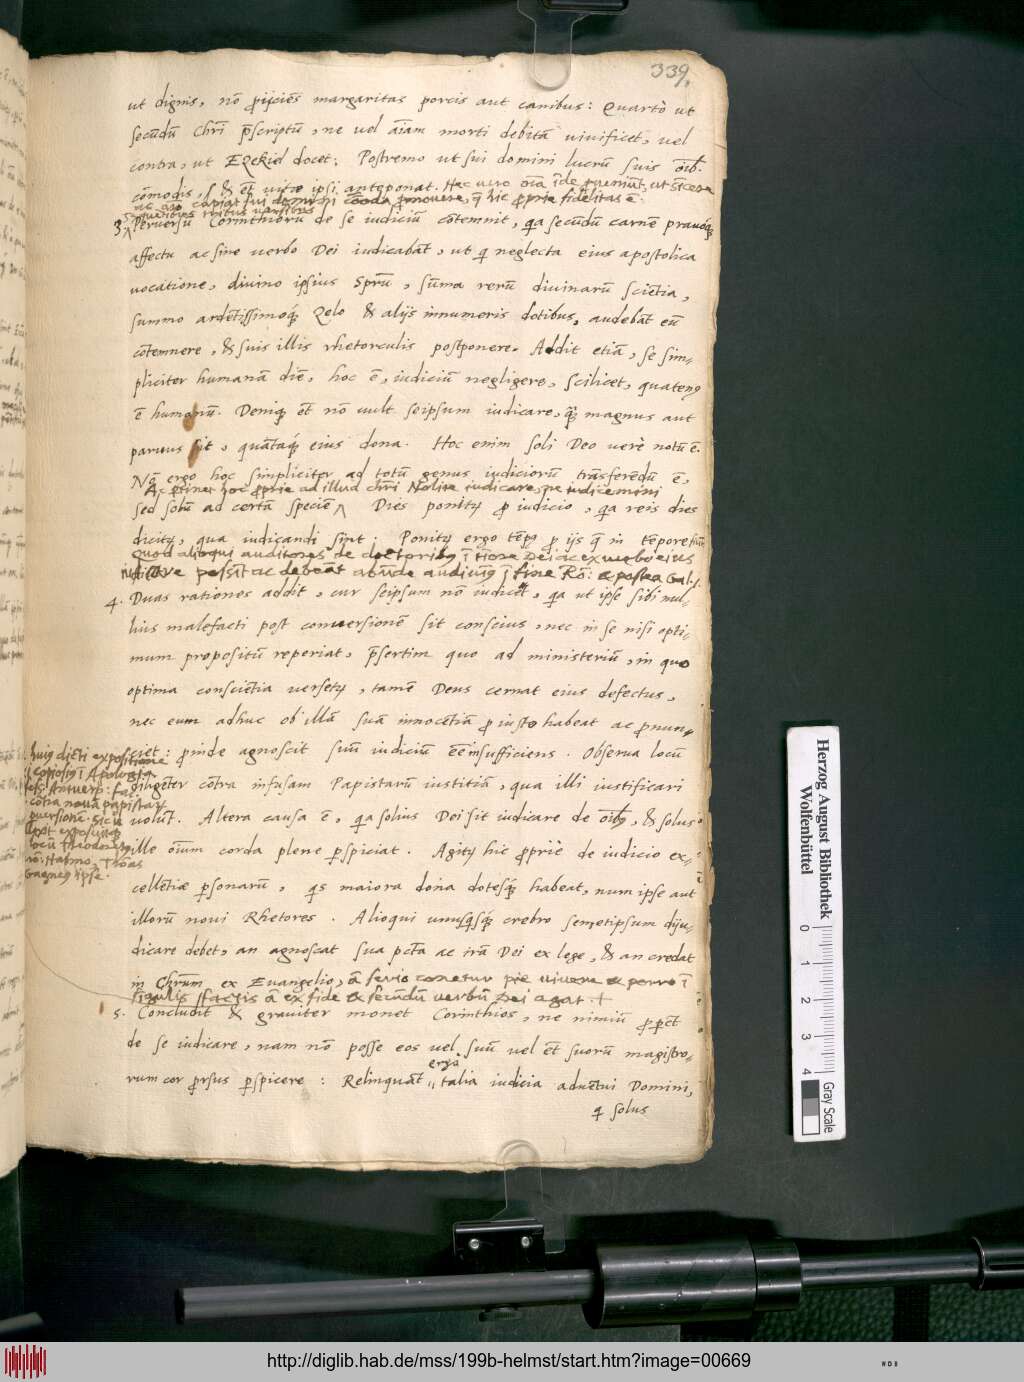 339.
ut dignis, nō ꝓijciēs margaritas porcis aut canibus: Quartò ut
secūdū Chrī p̄scriptū, ne uel aīam morti debitā uiuificet, uel
contra, ut Ezekiel docet; Postremo ut sui domini lucrū suis oīb.
cōmodis, & ēt uitæ ipsi anteponat. Hæc uero oīa
3. Peruersū Corinthiorū de se iudiciū cōtemnit, qa secūdū carnē prauóq́
affectu ac sine uerbo Dei iudicabāt, ut q neglecta eius apostolica
uocatione, diuino ipsius Sprū, sūma rerū diuinarū sciētia,
summo ardētissimoq́ zelo & alijs innumeris dotibus, audebāt eū
cōtemnere, & suis illis rhetorculis postponere. Addit etiā, se sim-
pliciter humanā diē, hoc ē, iudiciū negligere, scilicet, quatenꝰ
ē humanū. Deniq ēt nō uult seipsum iudicare, magnus aut
paruus sit, quātaq́ eius dona. Hoc enim soli Deo uerè notū ē.
Nō ergo hoc simpliciter ad totū genus iudiciorū trāsferēdū ē,
Ac ꝑtinet hoc ꝓprie ad illud Chrī Nolite iudicare, ne iudicemini
sed solū ad certā speciē Dies ponitꝛ ꝓ iudicio, qa reis dies
dicitꝛ, qua iudicandi sint. Ponitꝛ ergo tēpꝰ ꝓ ijs
quod alioqui auditores de doctoribꝰ ī timore Dei ac ex uerbo eius
iudicare possint ac debeāt abūde audiuimꝰ ī fine Ro: & postea Gal.
4. Duas rationes addit, cur seipsum nō iudicet, qa ut ipse sibi nul-
lius malefacti post conuersionē sit conscius, nec in se nisi opti-
mum propositū reperiat, p̄sertim quo ad ministeriū, in quo
optima consciētia uersetꝛ, tamē Deus cernat eius defectus,
nec eum adhuc ob illā suā innocētiā ꝓ iusto habeat ac ꝓnun-
ciet: ꝓinde agnoscit suū iudiciū eē insufficiens. Obserua locū
diligēter cōtra infusam Papistarū iustitiā, qua illi iustificari
uolūt. Altera causa ē, qa solius Dei sit iudicare de oībꝰ, & solus
ille oīum corda plene ꝑspiciat. Agitꝛ hic ꝓpriè de iudicio ex-
cellētiæ ꝑsonarū, qs maiora dona dotesq́ habeat, num ipse aut
illorū noui Rhetores. Alioqui unusqsq́ crebro semetipsum diju-
dicare debet, an agnoscat sua pctā ac irā Dei ex lege, & an credat
in Chrūm ex Euangelio, ā serio conetur pie uiuere & porro ī
sīgulis factis ā ex fide & secūdū uerbū Dei agat +
5. Concludit & grauiter monet Corinthios, ne nimiū ꝓpct
de se iudicare, nam nō posse eos uel suū uel ēt suorū magistro-
rum cor ꝓrsus ꝑspicere: Relinquāt ergo talia iudicia aduētui Domini,
q solus
huiꝰ dicti expositione
copiosiꝰ ī Apologia
Antuerp:
cōtra nouā papistarꝛ
Herzog August Bibliothek
Wolfenbüttel
0 1 2 3 4
Gray Scale
http://diglib.hab.de/mss/199b-helmst/start.htm?image=00669
WDB